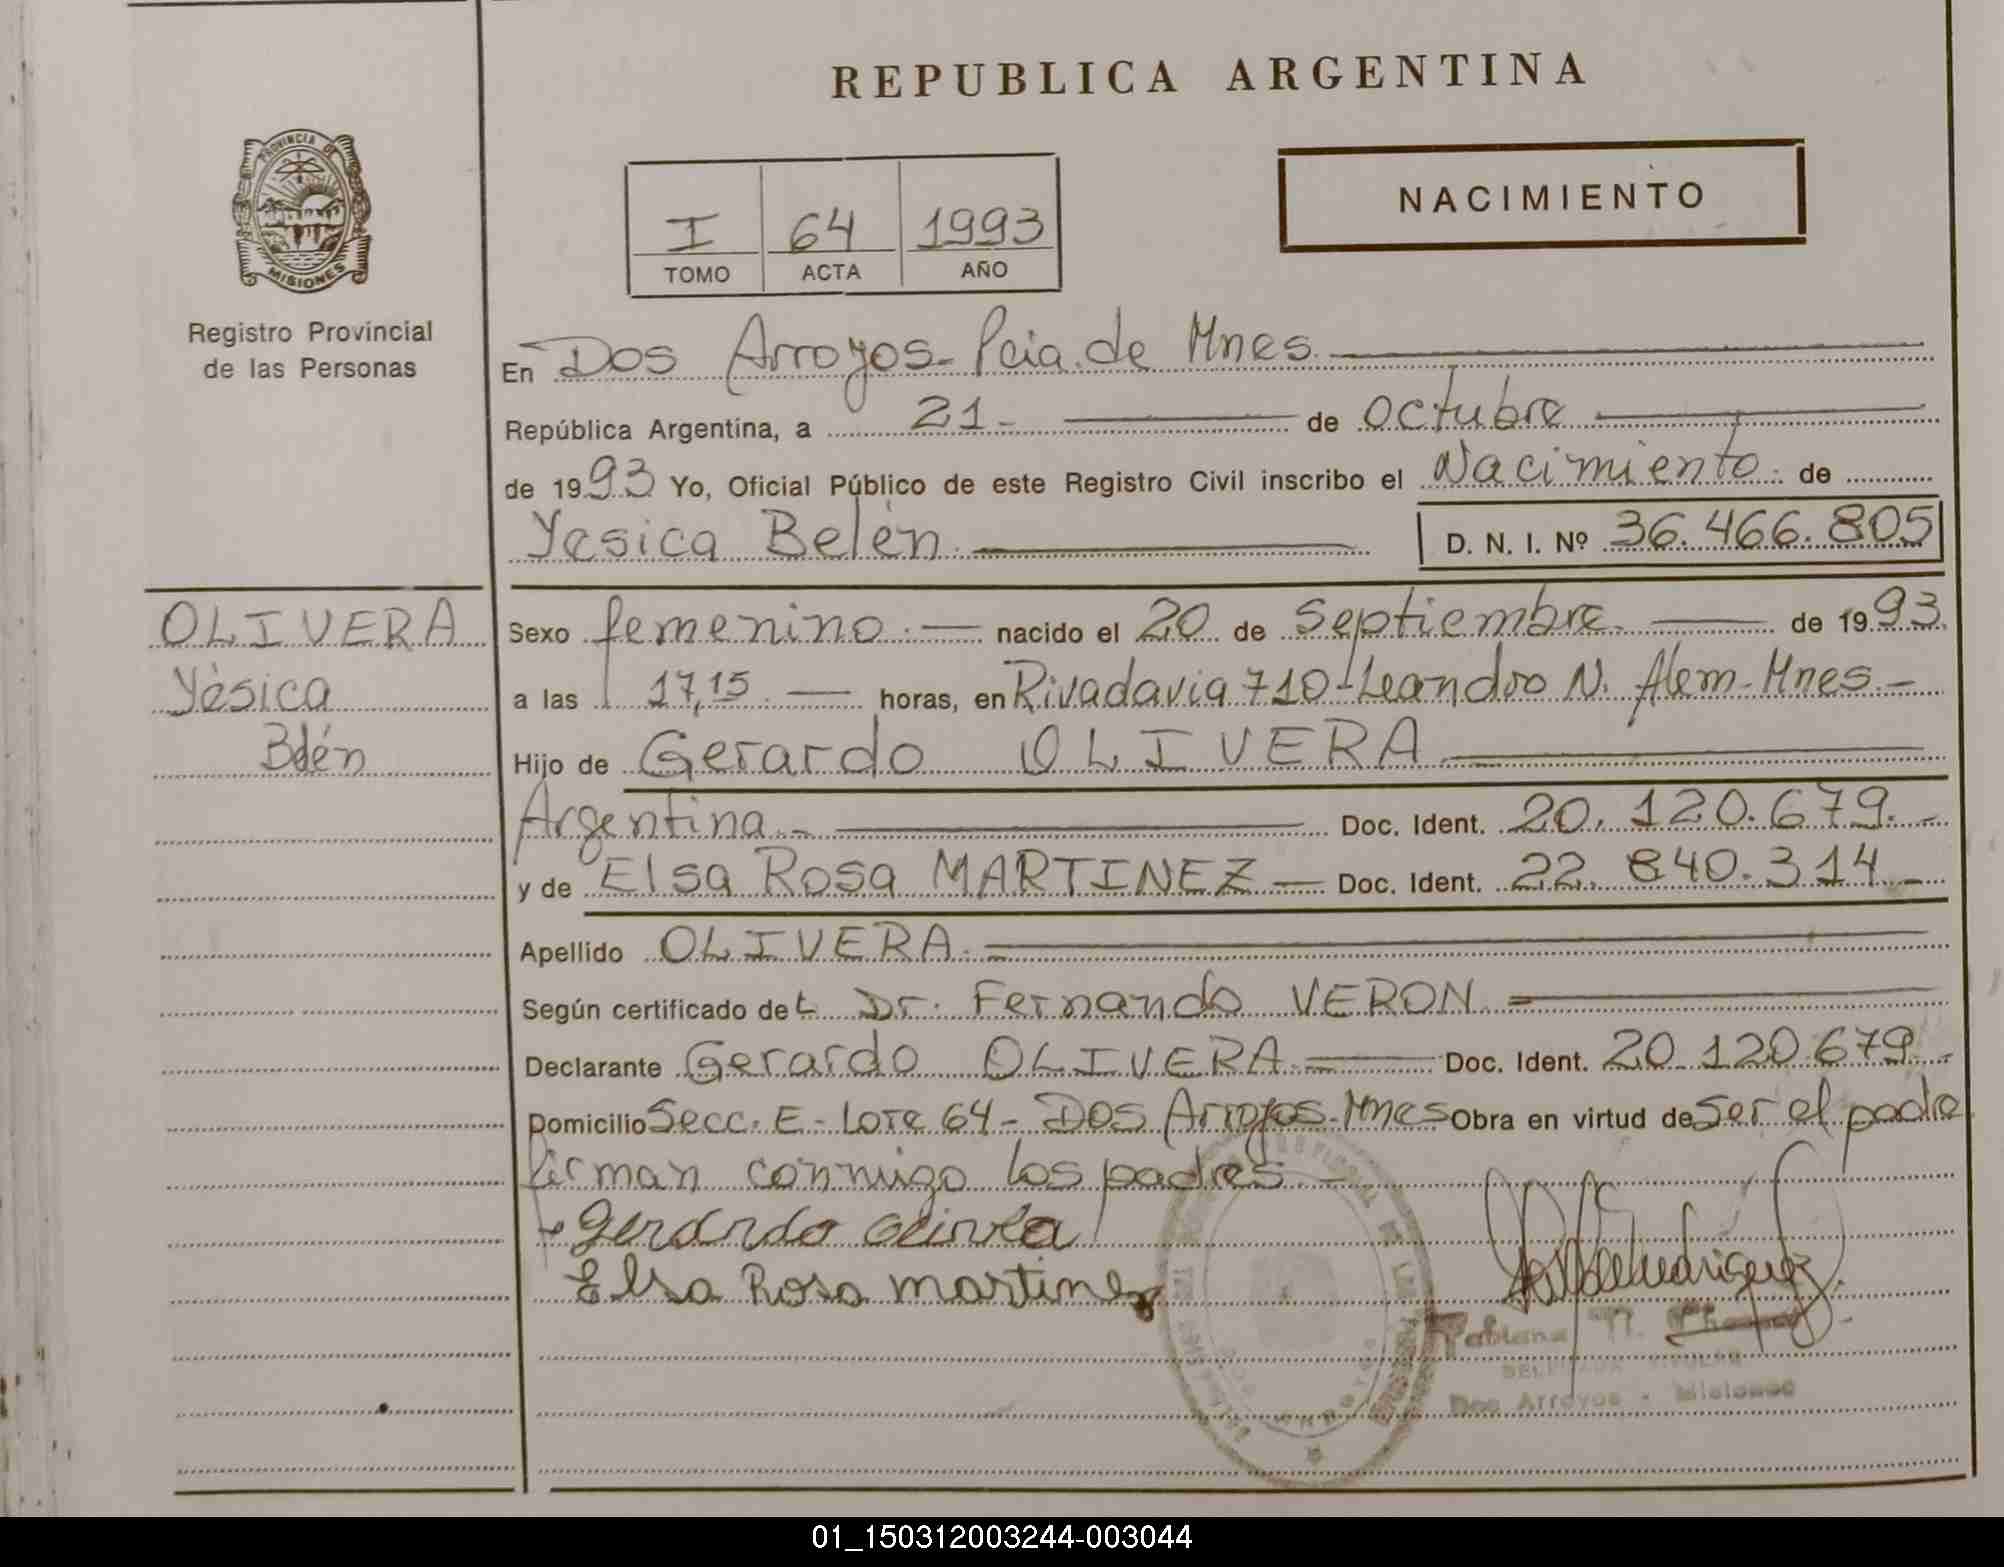 REPUBLICA ARGENTINA
PROVINCIA DE
MISIONES
Registro Provincial
de las Personas
I 64 1993
TOMO ACTA AÑO
NACIMIENTO
En Dos Arroyos- Pcia. de Mnes.
República Argentina, a 21- de octubre
de 1993 Yo, Oficial Público de este Registro Civil inscribo el Nacimiento. de
Yesica Belén. D. N. I. Nº 36.466.805
OLIVERA
Yésica
Belén
Sexo femenino. nacido el 20 de Septiembre. de 1993.
a las 17,15. horas, en Rivadavia 710-Leandro N. Alem-Mnes.-
Hijo de Gerardo OLIVERA
Argentina.- Doc. Ident. 20.120.679.-
y de Elsa Rosa MARTINEZ Doc. Ident. 22.840.314.-
Apellido OLIVERA.
Según certificado del Dr. Fernando VERON.
Declarante Gerardo OLIVERA. Doc. Ident. 20.120.679.-
Domicilio Secc. E- Lote 64- Dos Arroyos-Mnes Obra en virtud de ser el padre
firman conmigo los padres.
Gerardo Olivera
Elsa Rosa martinez
Fabiana N.
DELEGADA TITULAR
Dos Arroyos - Misiones
01_150312003244-003044